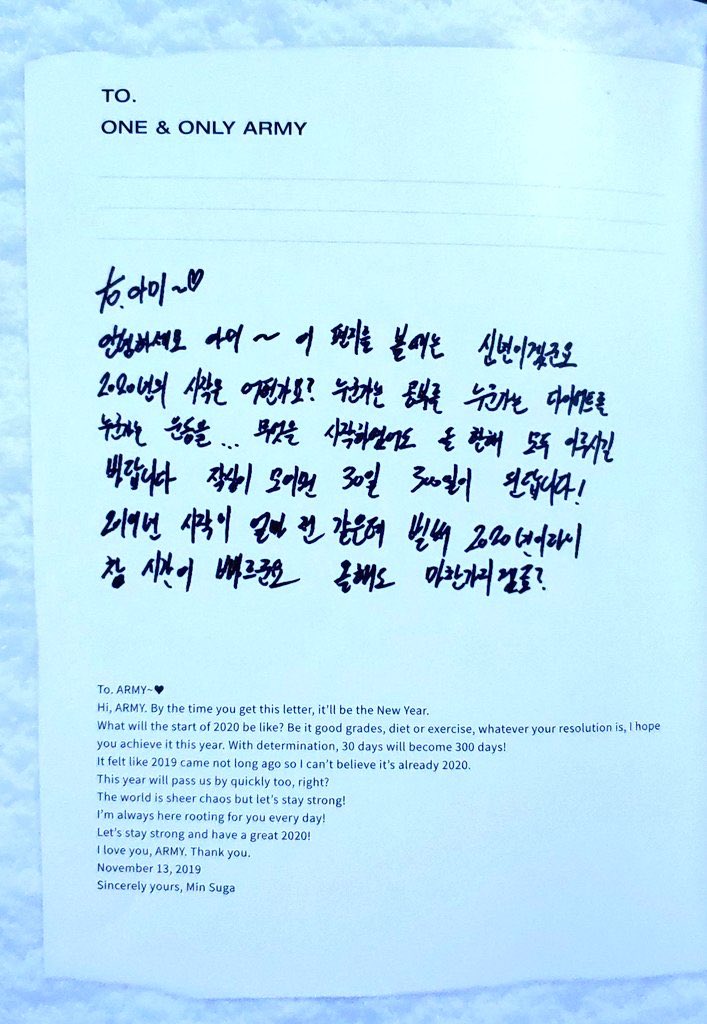 TO.
ONE & ONLY ARMY
to. 아미~♡
안녕하세요 아미 ~ 이 편지를 볼때는 신년이겠군요
2020년의 시작은 어떤가요? 누군가는 공부를 누군가는 다이어트를
누군가는 운동을... 무엇을 시작하였어도 올 한해 모두 이루시길
바랍니다 작심이 모이면 30일 300일이 된답니다!
2019년 시작이 얼마 전 같은데 벌써 2020년이라니
참 시간이 빠르군요 올해도 마찬가리겠죠?
To. ARMY~♥
Hi, ARMY. By the time you get this letter, it'll be the New Year.
What will the start of 2020 be like? Be it good grades, diet or exercise, whatever your resolution is, I hope
you achieve it this year. With determination, 30 days will become 300 days!
It felt like 2019 came not long ago so I can't believe it's already 2020.
This year will pass us by quickly too, right?
The world is sheer chaos but let's stay strong!
I'm always here rooting for you every day!
Let's stay strong and have a great 2020!
I love you, ARMY. Thank you.
November 13, 2019
Sincerely yours, Min Suga